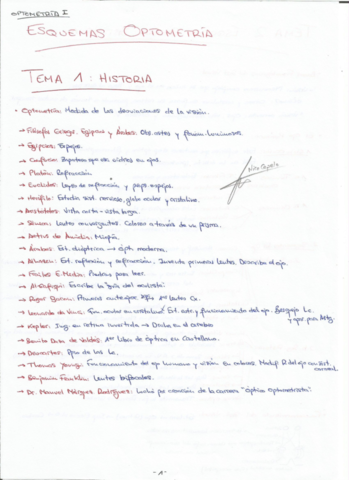 OPTOMETRÍA I
ESQUEMAS OPTOMETRÍA
TEMA 1: HISTORIA
Optometría: Medida de las desviaciones de la visión.
→ Filósofos Griegos, Egipcios y Árabes: Obs. astros y luminosos.
→ Egipcios: Espejos.
→ Confucio: Zapatero que ve en ojos.
→ Platón: Refracción.
→ Euclides: Leyes de reflexión y espejos.
→ Herófilo: Estudia sist. nervioso, globo ocular y cristalino.
→ Aristóteles: Vista corta - vista larga.
→ Séneca: Lentes. Colores a través de un prisma.
→ de Amidia: Miopía.
→ Árabes: Est. → ópt. moderna.
→ Alhacen: Est. reflexión y refracción. Inventa primeras lentes. Describe el ojo.
→ Frailes E. Media: Piedras para leer.
→ Escribe la guía del oculista
→ Roger Bacon: Primeras lentes
→ Leonardo da Vinci: Est. anat. y funcionamiento del ojo. Lc
y Astg.
→ Kepler: Img. en retina invertida → Dcha en el cerebro
→ Benito Daza de Valdés: 1er Libro de Óptica en Castellano.
→ Descartes: Ppio de las Lc.
→ Thomas Young: Funcionamiento del ojo humano y visión en colores. Modif. R del ojo con
→ Benjamin Franklin: Lentes bifocales.
→ Dr. Manuel Márquez Rodríguez: Luchó por creación de la carrera "Óptico Optometrista"
-1-